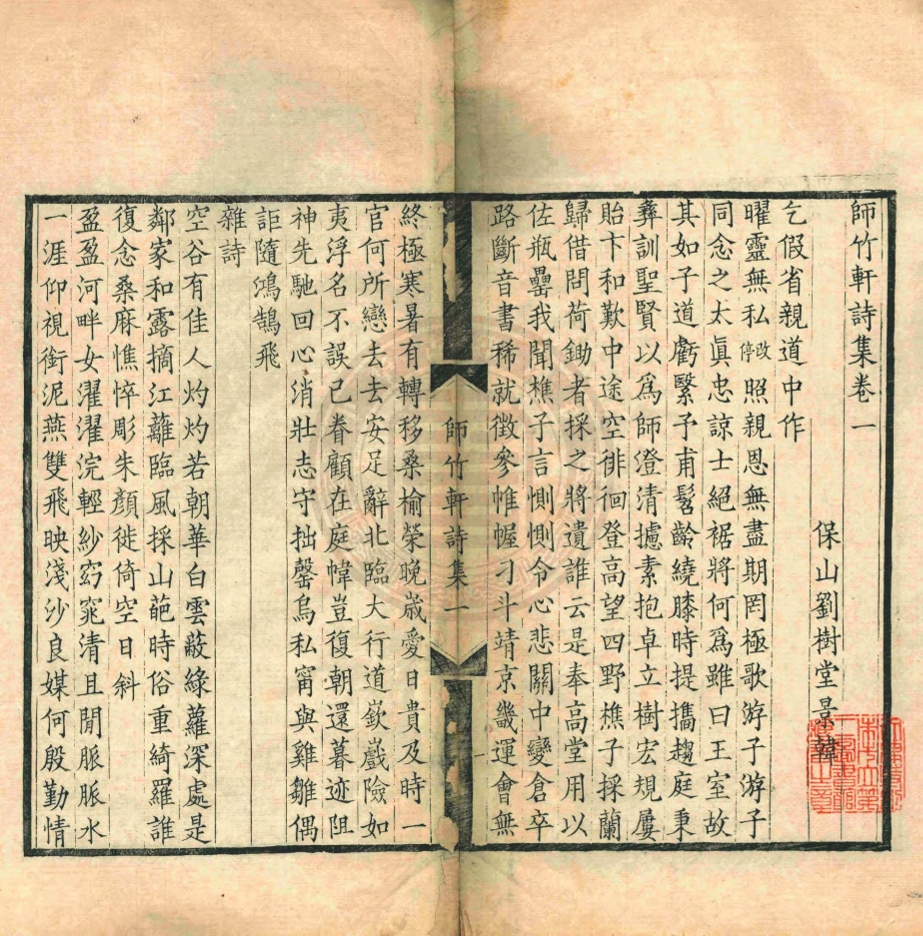 師竹軒詩集卷一
保山劉樹堂景韓
乞假省親道中作
曜靈無私改停照親恩無盡期罔極歌游子游子
同念之太眞忠諒士絕裾將何爲雖曰王室故
其如子道虧緊予甫髫齡繞膝時提攜趨庭秉
彝訓聖賢以爲師澄清攄素抱卓立樹宏規屢
貽卞和歎中途空徘徊登高望四野樵子採蘭
歸借問荷鋤者採之將遺誰云是奉高堂用以
佐瓶罍我聞樵子言惻惻令心悲關中變倉卒
路斷音書稀就徵參帷幄刁斗靖京畿運會無
師竹軒詩集一
一
終極寒暑有轉移桑榆榮晚歲愛日貴及時一
官何所戀去去安足辭北臨大行道嶔巇險如
夷浮名不誤已眷顧在庭幃豈復朝還暮迹阻
神先馳回心消壯志守拙罄烏私甯與雞雛偶
詎隨鴻鵠飛
雜詩
空谷有佳人灼灼若朝華白雲蔽綠蘿深處是
鄰家和露摘江蘺臨風採山葩時俗重綺羅誰
復念桑麻憔悴彫朱顏徙倚空日斜
盈盈河畔女濯濯浣輕紗窈窕清且閒脈脈水
一涯仰視銜泥燕雙飛映淺沙良媒何殷勤情